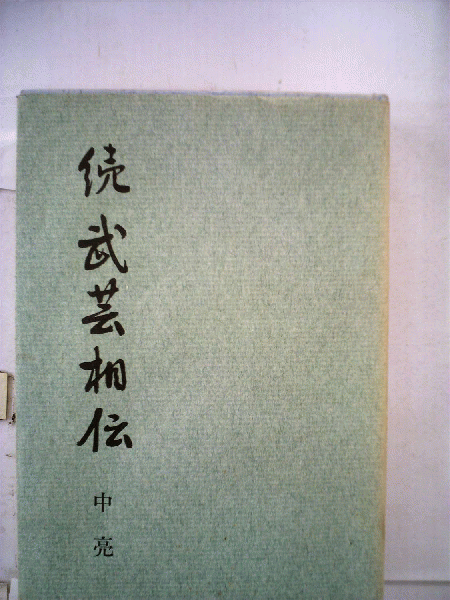 続 武芸相伝
中 亮